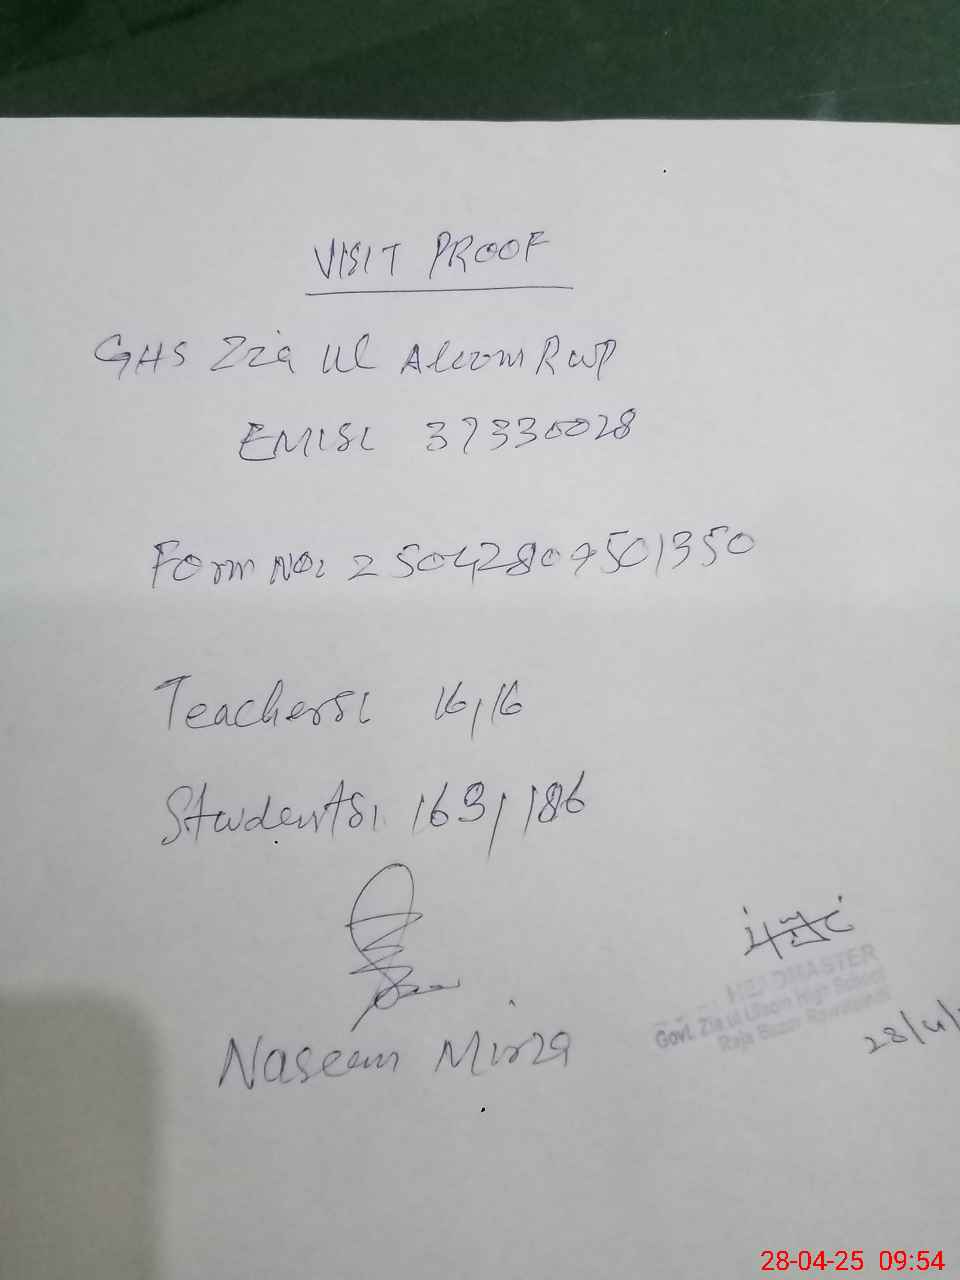 VISIT PROOF
GHS Zia ul Aloom Rwp
EMIS: 37330028
Form No: 25042809501350
Teachers: 16/16
Students: 163/186
Naseem Mirza
HEADMASTER
Govt. Zia ul Uloom High School
Raja Bazar Rawalpindi
28/4/
28-04-25 09:54